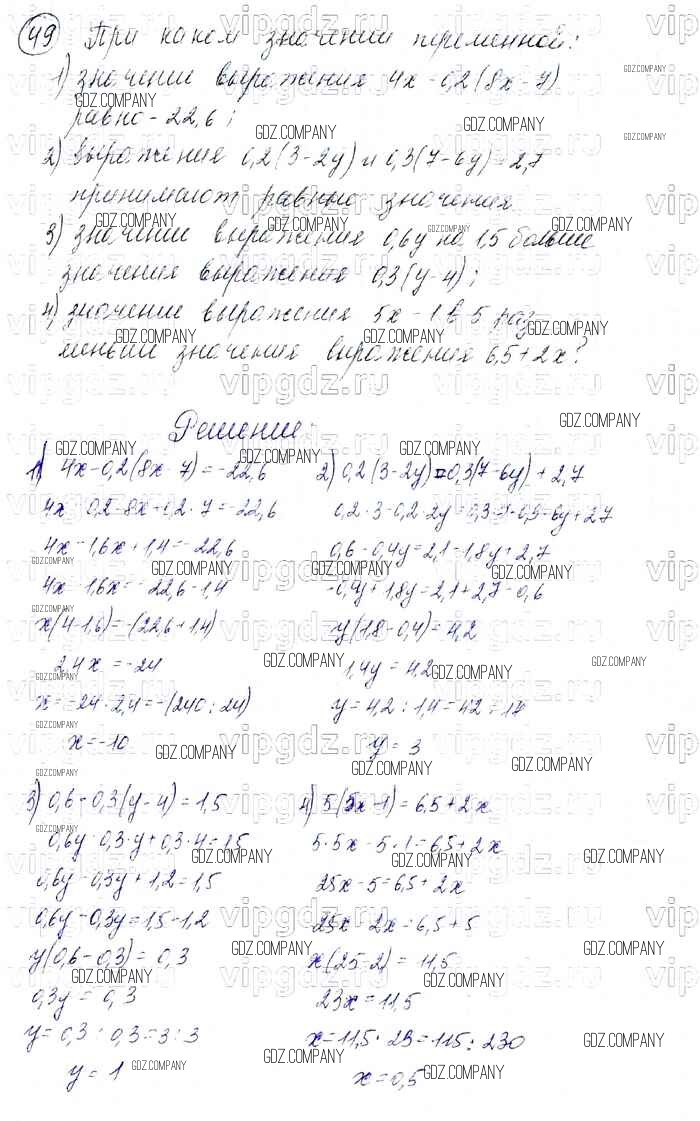 49 При каком значении переменной:
1) значение выражения 4x - 0,2(8x - 7)
равно -22,6;
2) выражения 0,2(3-2y) и 0,3(7-6y)+2,7
принимают равные значения
3) значение выражения 0,6y на 1,5 больше
значения выражения 0,3(y-4);
4) значение выражения 5x-1 в 5 раз
меньше значения выражения 6,5+2x?
Решение:
1) 4x-0,2(8x-7)=-22,6
4x-0,2·8x+0,2·7=-22,6
4x-1,6x+1,4=-22,6
4x-1,6x=-22,6-1,4
x(4-1,6)=-(22,6+1,4)
2,4x=-24
x=-24:2,4=-(240:24)
x=-10
2) 0,2(3-2y)=0,3(7-6y)+2,7
0,2·3-0,2·2y=0,3·7-0,3·6y+2,7
0,6-0,4y=2,1-1,8y+2,7
-0,4y+1,8y=2,1+2,7-0,6
y(1,8-0,4)=4,2
1,4y=4,2
y=4,2:1,4=42:14
y=3
3) 0,6-0,3(y-4)=1,5
0,6y-0,3·y+0,3·4=1,5
0,6y-0,3y+1,2=1,5
0,6y-0,3y=1,5-1,2
y(0,6-0,3)=0,3
0,3y=0,3
y=0,3:0,3=3:3
y=1
4) 5(5x-1)=6,5+2x
5·5x-5·1=6,5+2x
25x-5=6,5+2x
25x-2x=6,5+5
x(25-2)=11,5
23x=11,5
x=11,5:23=115:230
x=0,5
GDZ.COMPANY
vipgdz.ru